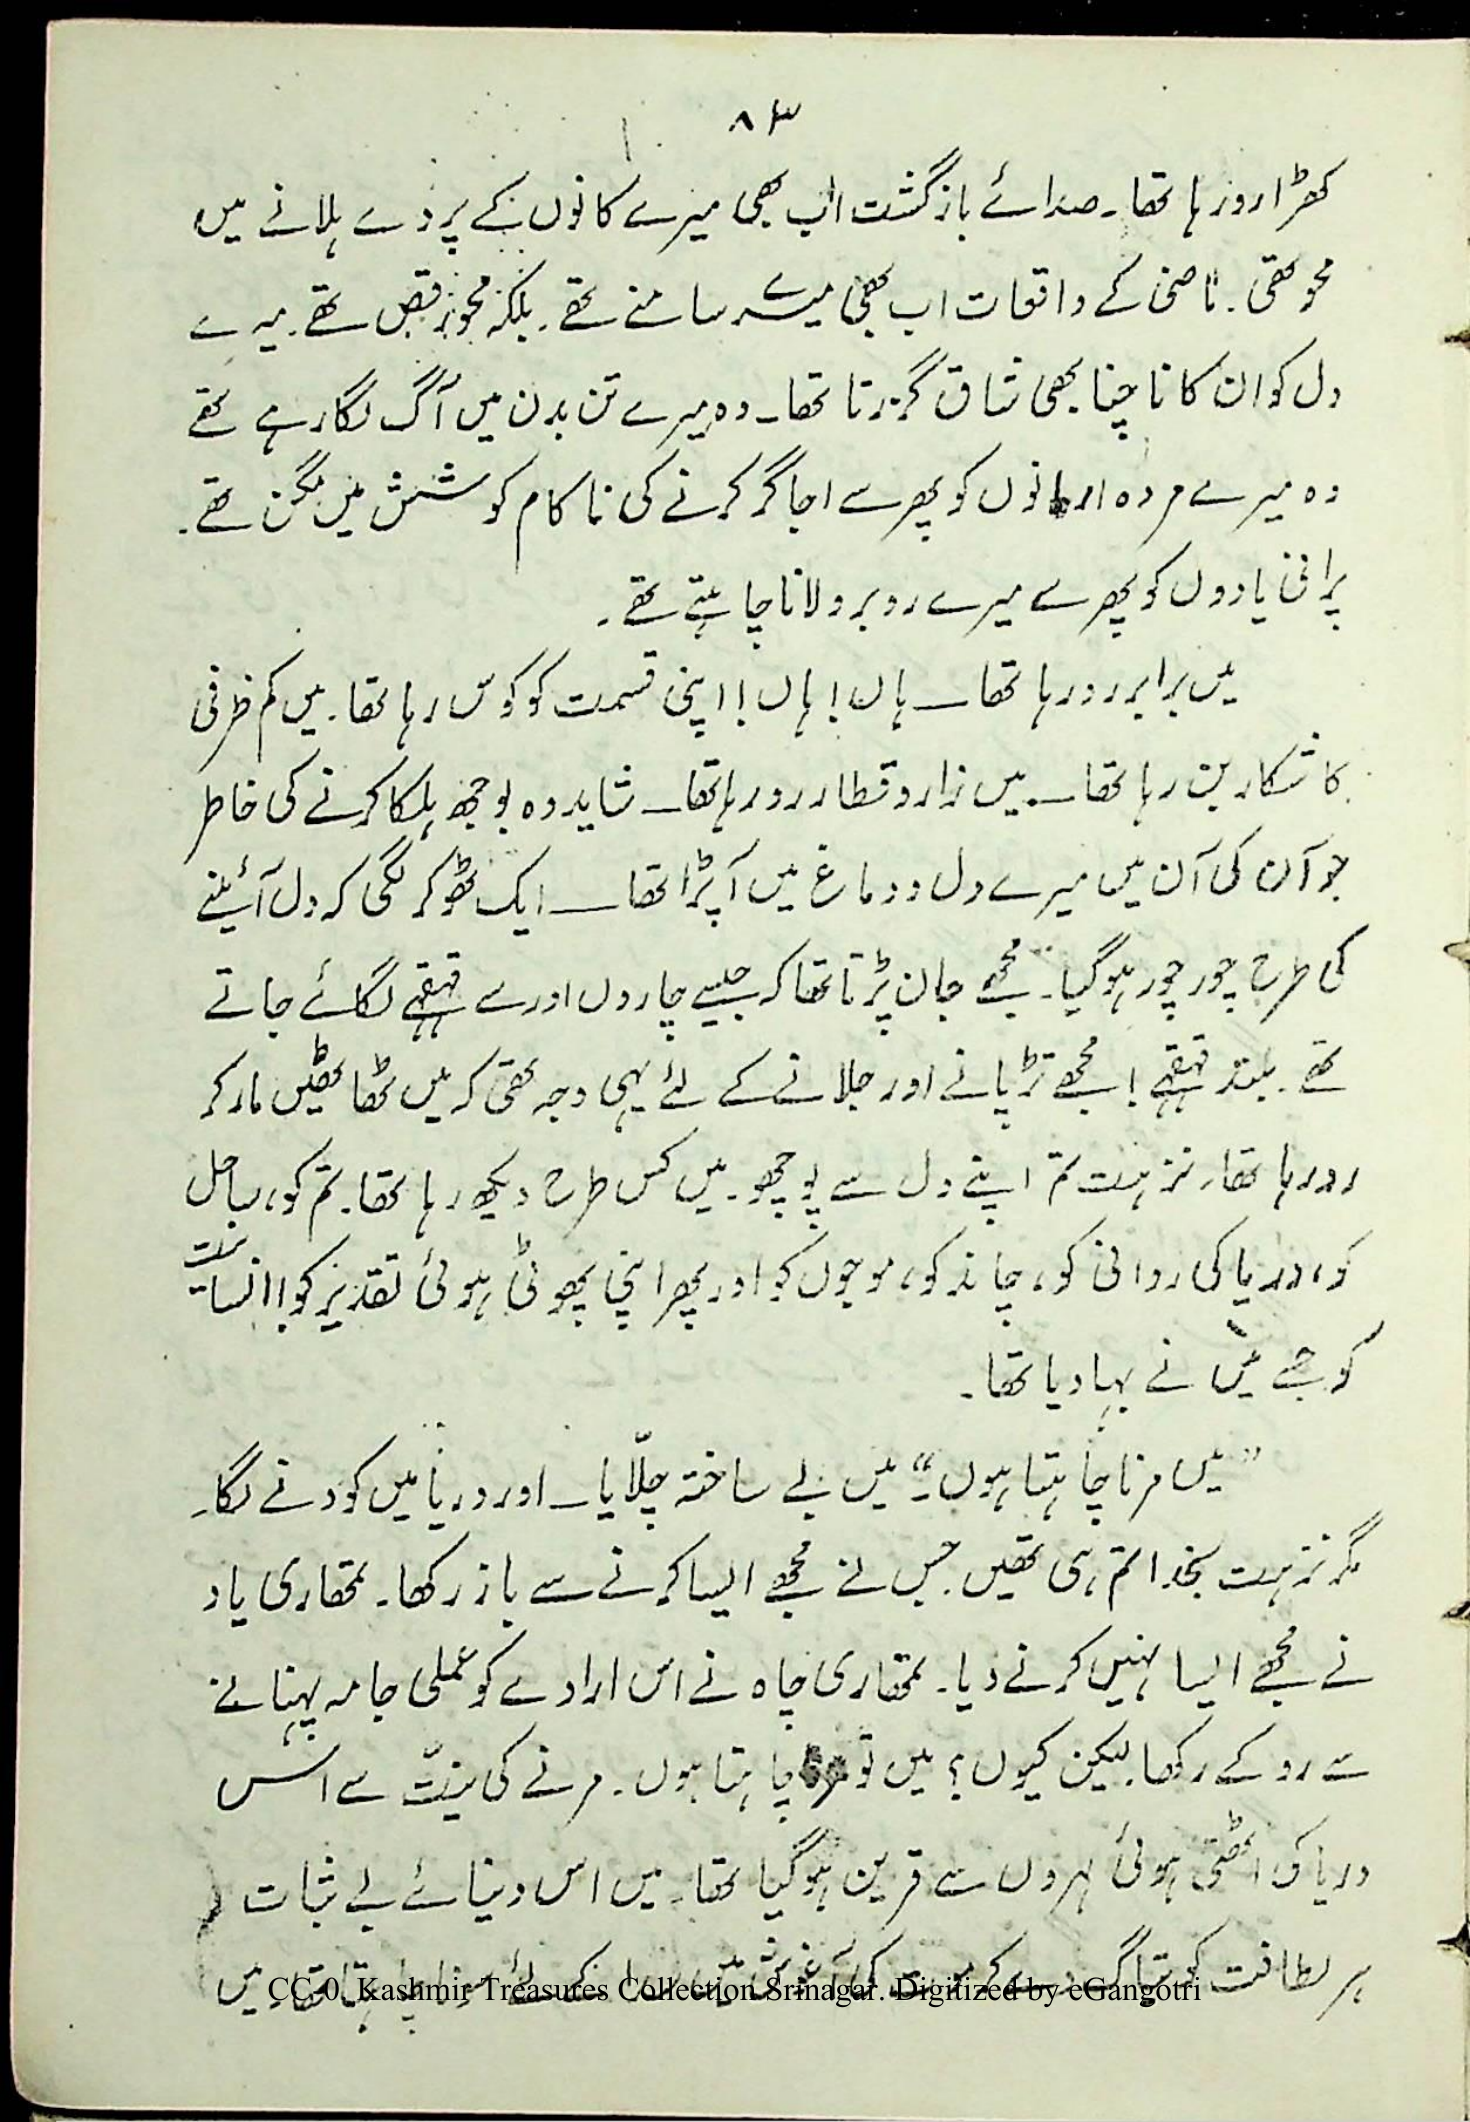 ۸۳
کھڑا رو رہا تھا۔ صدائے بازگشت اب بھی میرے کانوں کے پردے ہلانے میں
محو تھی۔ ماضی کے واقعات اب بھی میرے سامنے تھے۔ بلکہ محو رقص تھے۔ میرے
دل کو ان کا ناچنا بھی شاق گزرتا تھا۔ وہ میرے تن بدن میں آگ لگا رہے تھے
وہ میرے مردہ ارمانوں کو پھر سے اجاگر کرنے کی ناکام کوشش میں مگن تھے۔
پرانی یادوں کو پھر سے میرے روبرو لانا چاہتے تھے۔
میں برابر رو رہا تھا۔ ہاں! ہاں! اپنی قسمت کو کوس رہا تھا۔ میں کم ظرفی
کا شکار بن رہا تھا۔ میں زار و قطار رو رہا تھا۔ شاید وہ بوجھ ہلکا کرنے کی خاطر
جو آن کی آن میں میرے دل و دماغ میں آپڑا تھا۔ ایک ٹھوکر لگی کہ دل آئینے
کی طرح چور چور ہو گیا۔ مجھے جان پڑتا تھا کہ جیسے چاروں اور سے قہقہے لگائے جاتے
تھے۔ بلند قہقہے! مجھے تڑپانے اور جلانے کے لئے یہی وجہ تھی کہ میں ٹھاٹھیں مار کر
رو رہا تھا۔ نزہت تم اپنے دل سے پوچھو۔ میں کس طرح دیکھ رہا تھا۔ تم کو، ساحل
کو، دریا کی روانی کو، چاند کو، موجوں کو اور پھر اپنی پھوٹی ہوئی تقدیر کو! انسانیت
کو جسے میں نے بہا دیا تھا۔
"میں مرنا چاہتا ہوں"۔ میں بے ساختہ چلّایا۔ اور دریا میں کودنے لگا۔
مگر نزہت بخدا تم ہی تھیں جس نے مجھے ایسا کرنے سے باز رکھا۔ تمھاری یاد
نے مجھے ایسا نہیں کرنے دیا۔ تمھاری چاہ نے اس ارادے کو عملی جامہ پہنانے
سے روکے رکھا۔ لیکن کیوں؟ میں تو مرنا چاہتا ہوں۔ مرنے کی نیّت سے اس
دریا کی اٹھتی ہوئی لہروں سے قرین ہو گیا تھا۔ میں اس دنیائے بے ثبات
ہر لطافت کو تیاگ کر موت کی آغوش میں کے لئے چاہتا تھا۔ میں
CC-0. Kashmir Treasures Collection Srinagar. Digitized by eGangotri